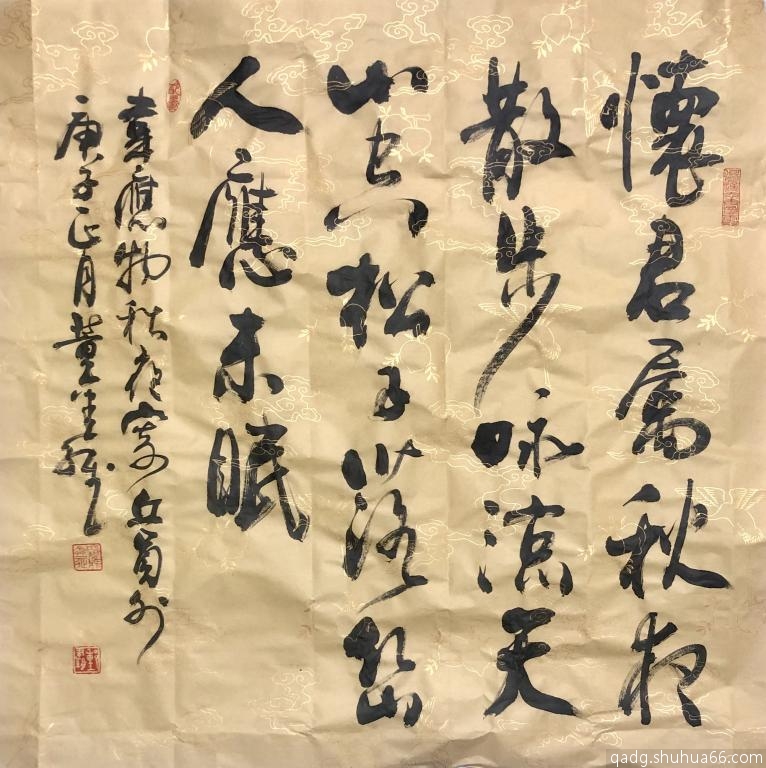 懷君屬秋夜
散步咏涼天
山空松子落幽
人應未眠
韋應物秋夜寄丘員外
庚子正月黃
qadg.shuhua66.com